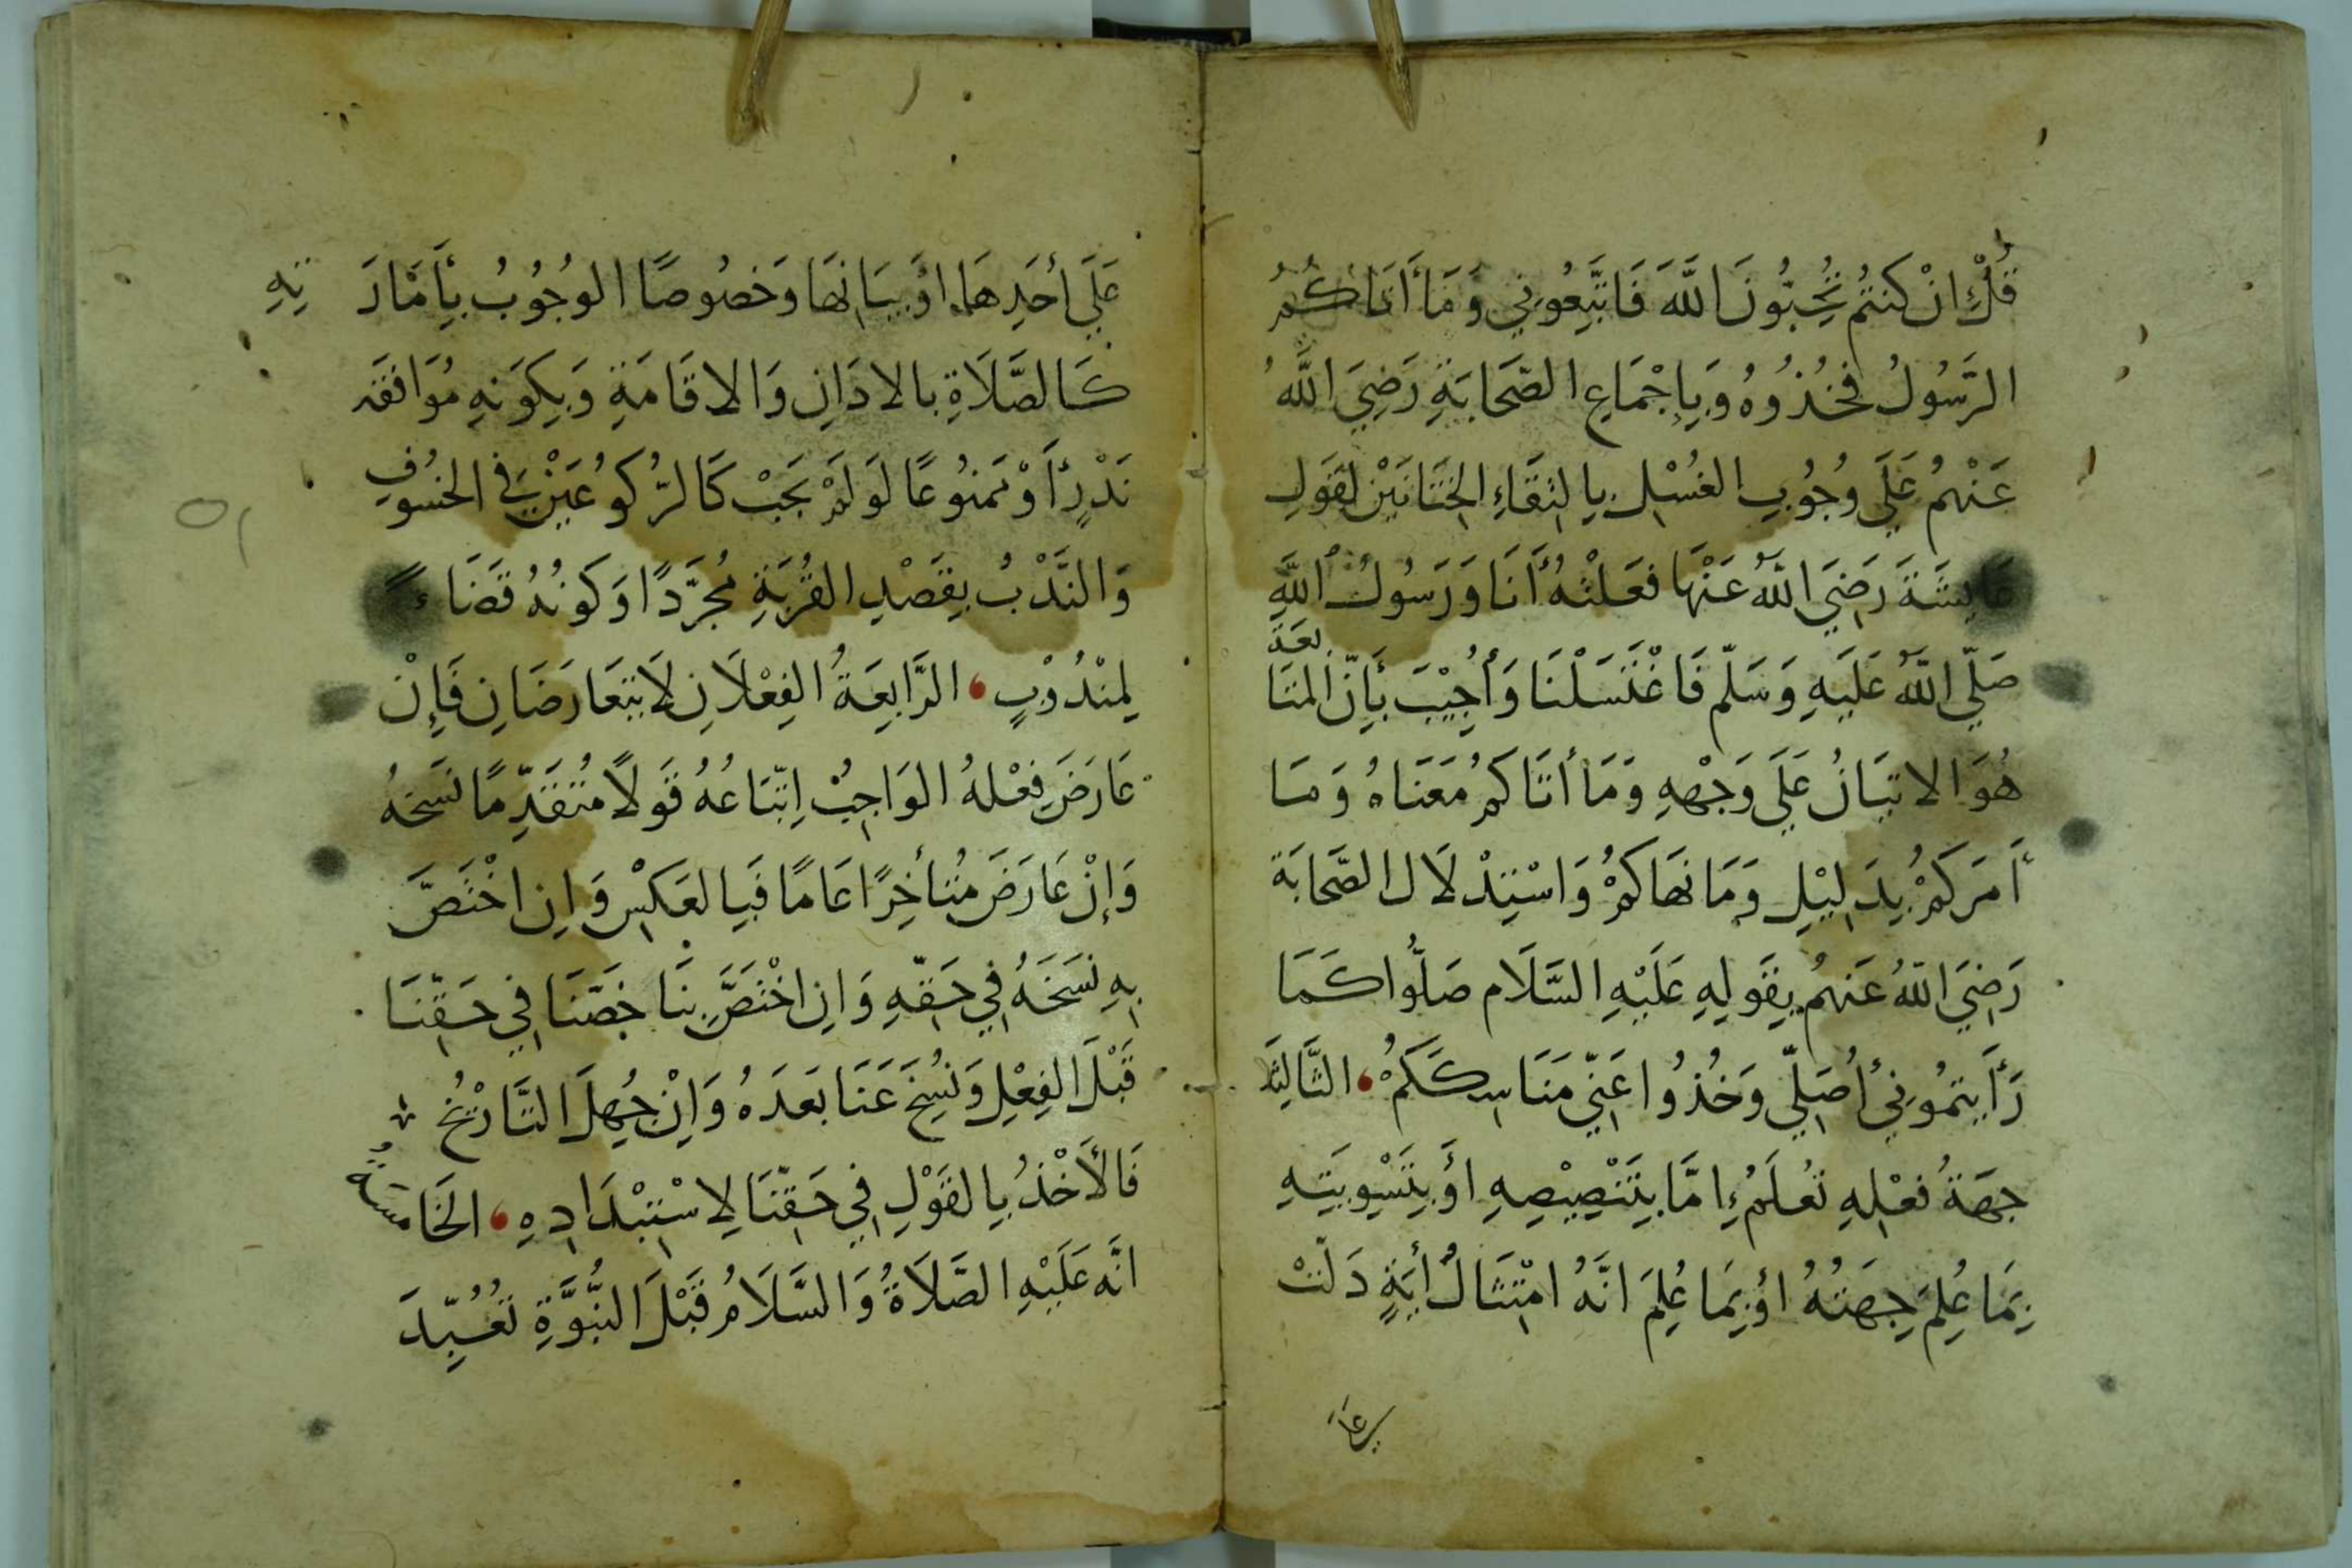 قُلْ إِنْ كُنتُمْ تُحِبُّونَ اللَّهَ فَاتَّبِعُونِي وَمَا أَتَاكُمُ
الرَّسُولُ فَخُذُوهُ وَبِإِجْمَاعِ الصَّحَابَةِ رَضِيَ اللَّهُ
عَنْهُمْ عَلَى وُجُوبِ الغُسْلِ بِالتِقَاءِ الخِتَانَيْنِ لِقَوْلِ
عَايِشَةَ رَضِيَ اللَّهُ عَنْهَا فَعَلْتُهُ أَنَا وَرَسُولُ اللَّهِ
صَلَّى اللَّهُ عَلَيْهِ وَسَلَّمَ فَاغْتَسَلْنَا وَأُجِيْبَ بِأَنَّ المُتَابَعَةَ
هُوَ الاتيَانُ عَلَى وَجْهِهِ وَمَا أَتَاكُمْ مَعْنَاهُ وَمَا
أَمَرَكُمْ بِدَلِيْلِ وَمَا نَهَاكُمْ وَاسْتِدْلَالِ الصَّحَابَة
رَضِيَ اللَّهُ عَنْهُمْ بِقَوْلِهِ عَلَيْهِ السَّلَام صَلُّوا كَمَا
رَأَيتمُونِي أُصَلِّي وَخُذُوا عَنِّي مَنَاسِكَكُمْ ، الثَّالِثَة
جِهَةُ فِعْلِهِ تُعْلَمُ إِمَّا بِتَنْصِيْصِهِ أَوْ بِتَسْوِيَتِهِ
بِمَا عُلِمَ جِهَتُهُ أَوْ بِمَا عُلِمَ انَّهُ امْتِثَالُ أيَةٍ دَلَّتْ
عَلَى أَحَدِهَا أَوْ بَيَانِهَا وَخصُوصًا الوُجُوبُ بِأَمَارَتِهِ
كَالصَّلَاةِ بالاذَانِ وَالاقَامَةِ وَبِكَوْنِهِ مُوَافَقَة
نَذْرٍ أَوْ مَمنُوعًا لَوْ لَمْ يَجِبْ كَالرُّكُوعَيْنِ فِي الخسُوفِ
وَالنَّدْبُ بِقَصْدِ القُرْبَةِ مُجَرَّدًا وَكَونُهُ قَضَاءً
لِمَنْدُوْبٍ ، الرَّابِعَةُ الفِعْلَانِ لَا يتَعَارَضَانِ فَإِنْ
عَارَضَ فِعْلهُ الوَاجِبُ اِتّبَاعُهُ قَوْلًا مُتَقَدِّمًا نَسَخَهُ
وَإِنْ عَارَضَ مُتَأخِرًا عَامًا فَبِالعَكْسِ وَإِنِ اخْتَصَّ
بِهِ نَسَخَهُ فِي حَقِّهِ وَإِنِ اخْتَصَّ بِنَا خَصَّنَا فِي حَقِّنَا
قَبْلَ الفِعْلِ وَنُسِخَ عَنَّا بَعْدَهُ وَإِنْ جُهِلَ التَّارِيْخُ
فَالأَخْذُ بِالقَوْلِ فِي حَقِّنَا لِاسْتِبْدَادِهِ ، الخَامسَةُ
انَّه عَلَيْهِ الصَّلَاةُ وَالسَّلَامُ قَبْلَ النُّبُوَّةِ تُعُبِّدَ